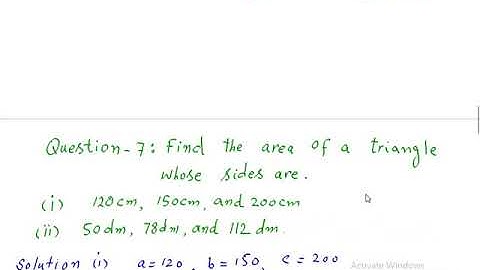 Question-7: Find the area of a triangle
whose sides are.
(i) 120cm, 150cm, and 200cm
(ii) 50dm, 78dm, and 112 dm.
Solution (i) a=120, b=150, c=200
Activate Windows